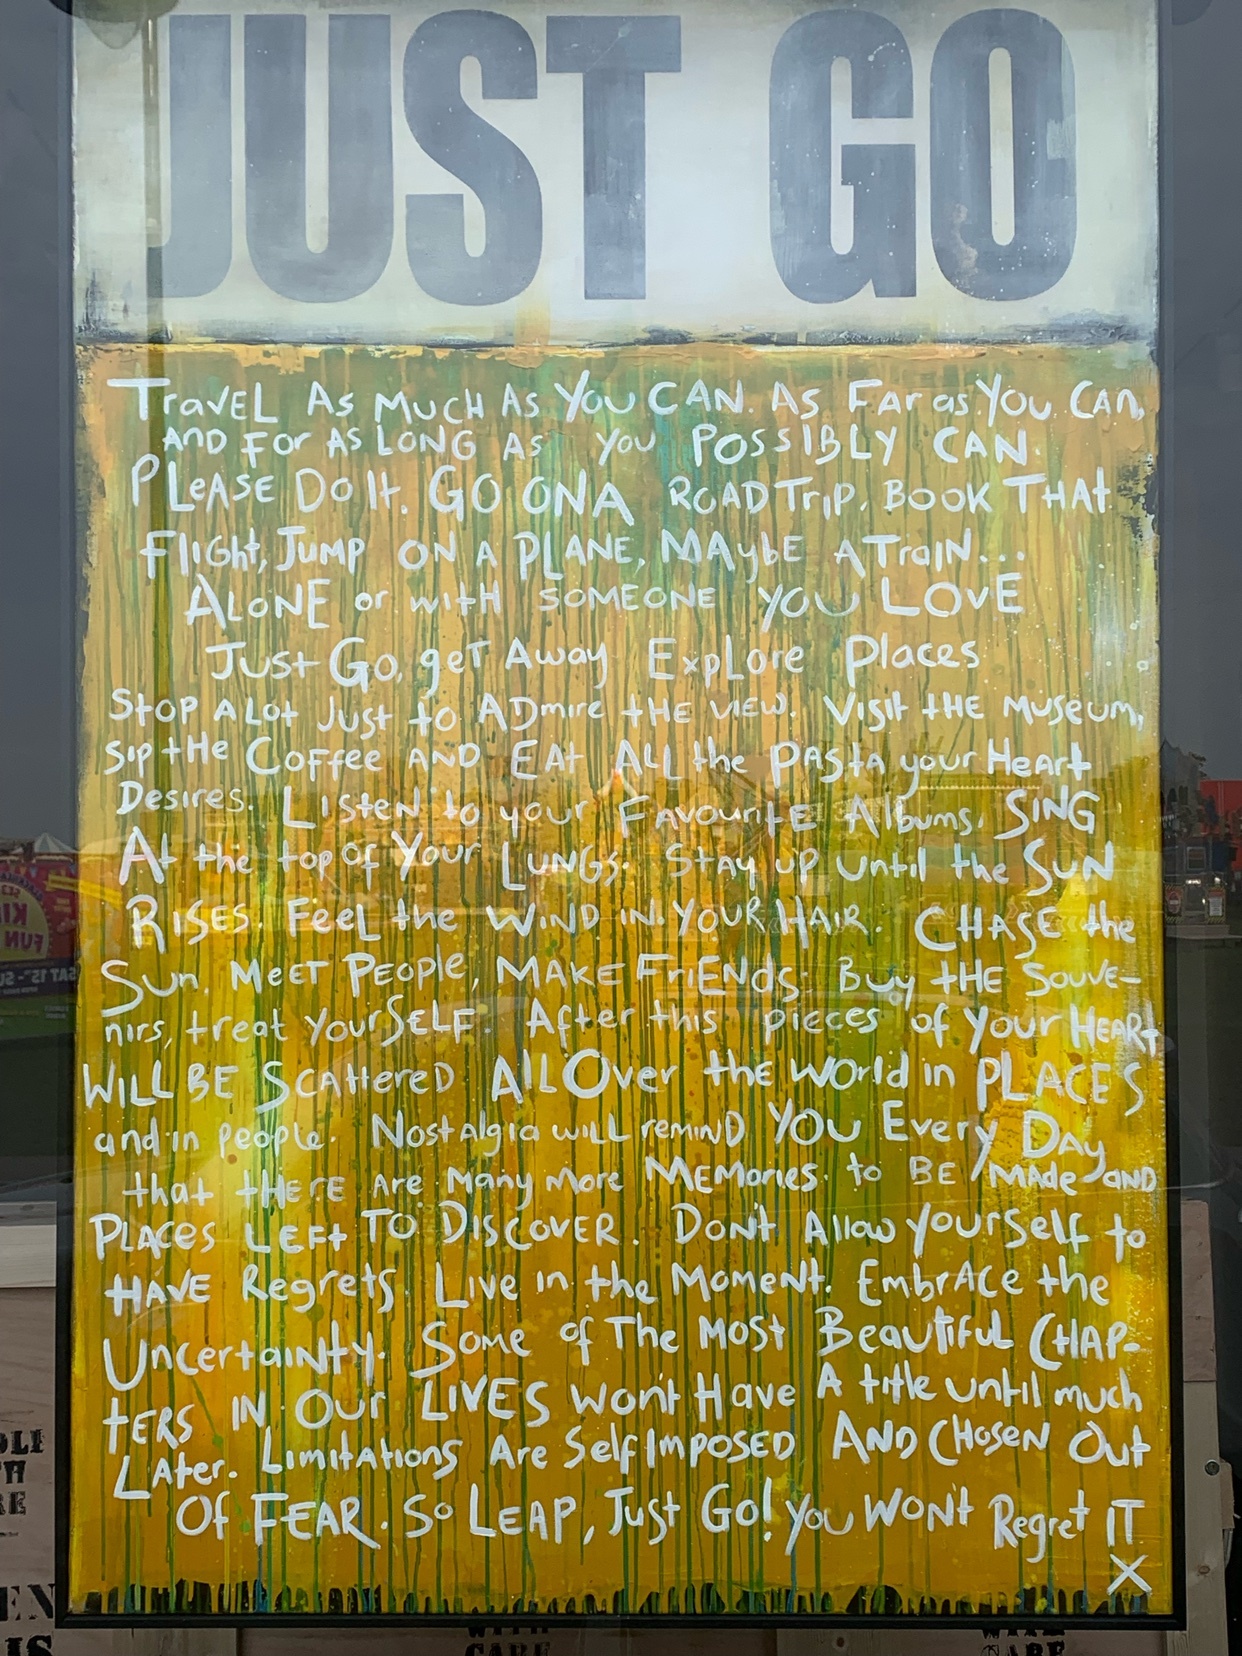 JUST GO
TravEL As MucH As You CAN. As Far as You Can,
AND FOR AS LONG AS you POSSIBLY CAN.
PLEASE Do It. GO ON A ROAD Trip. BOOK THAt
Flight, Jump ON A PLANE, MAybE A TraiN...
ALONE or with SOMEONE you LOVE
Just Go, get Away ExpLore Places
Stop A Lot Just to ADmire tHE VIEW. Visit tHE museum,
sip tHe Coffee AND EAt ALL the PASta your Heart
Desires. Listen to your FavouritE Albums. SING
At the top of Your LUNGS. Stay up until the SUN
RISES. FeeL the WIND IN YOUR HAIR. CHASE the
Sun. MeET PEOPle, MAKE FriENDs. Buy tHE Souve-
nirs, treat YourSELF. After this pieces of your HEARt
WILL BE ScAttereD AllOver the World in PLACES
and in people. Nostalgia wiLL remiND YOU Every Day
that tHERE Are Many more MEMories to BE made and
PLACes LEFt TO DISCOVER. Don't Allow yourself to
HAVE Regrets. Live in the Moment. EmbrAce the
Uncertainty. Some of The Most Beautiful CHAP-
tERS IN Our LIVES Won't Have A title until much
Later. Limitations Are Self Imposed AND CHosEN Out
Of FEAR. So LEAP, Just Go! you WON't Regret IT
X
KIN
FUN
SAT 15
WITH
CARE